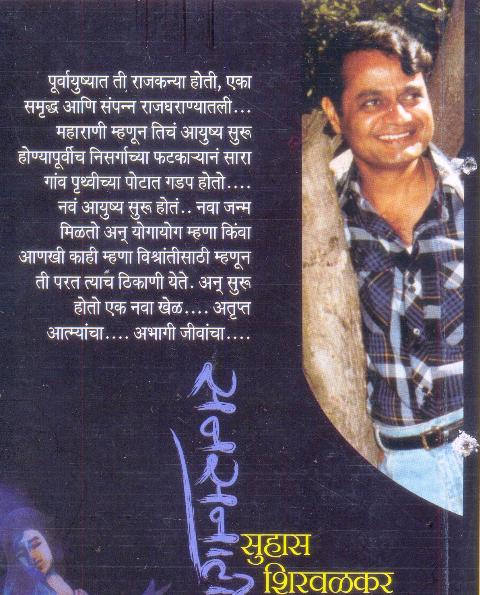 पूर्वायुष्यात ती राजकन्या होती, एका
समृद्ध आणि संपन्न राजघराण्यातली...
महाराणी म्हणून तिचं आयुष्य सुरू
होण्यापूर्वीच निसर्गाच्या फटकाऱ्यानं सारा
गांव पृथ्वीच्या पोटात गडप होतो....
नवं आयुष्य सुरू होतं.. नवा जन्म
मिळतो अन् योगायोग म्हणा किंवा
आणखी काही म्हणा विश्रांतीसाठी म्हणून
ती परत त्याच ठिकाणी येते. अन् सुरू
होतो एक नवा खेळ.... अतृप्त
आत्म्यांचा.... अभागी जीवांचा....
सुहास
शिरवळकर